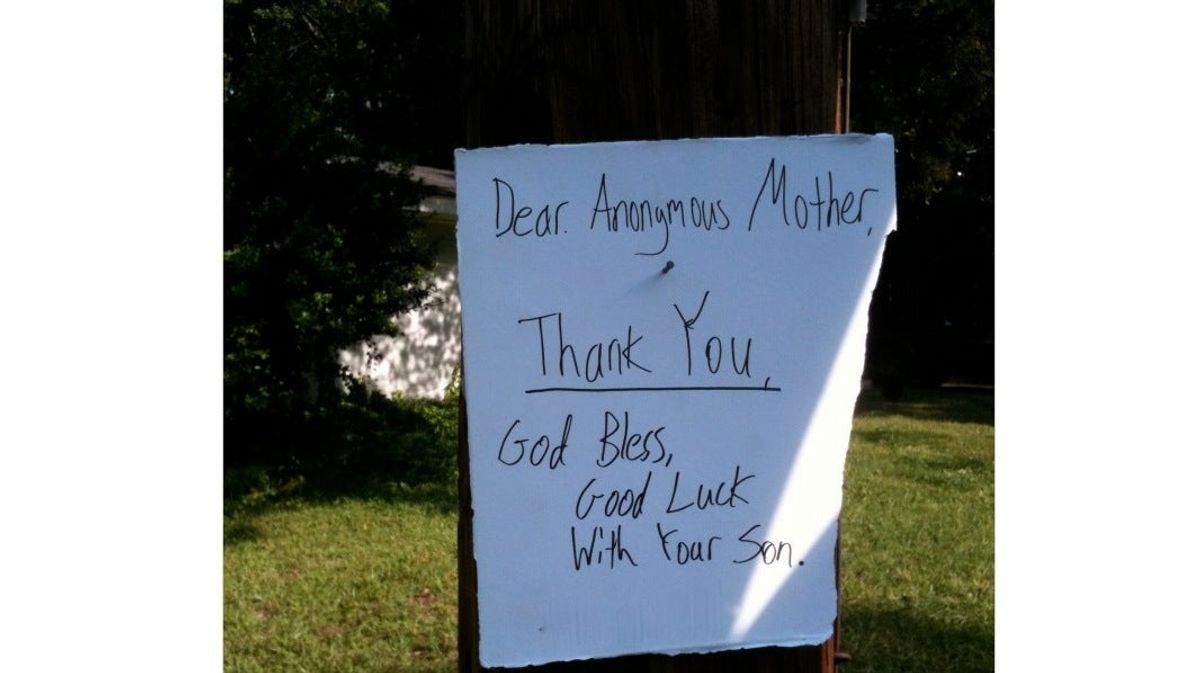 Dear. Anonymous Mother,
Thank You,
God Bless,
Good Luck
With Your Son.